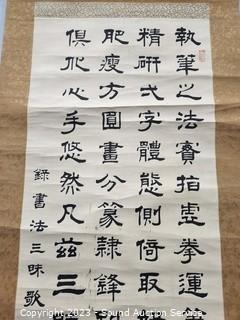 執筆之法實指虛拳運
精研弌字體態側倚取
肥瘦方圓畫分篆隸鋒
俱化心手悠然凡茲三
錄書法三昧歌
Copyright 2023 - Sound Auction Service